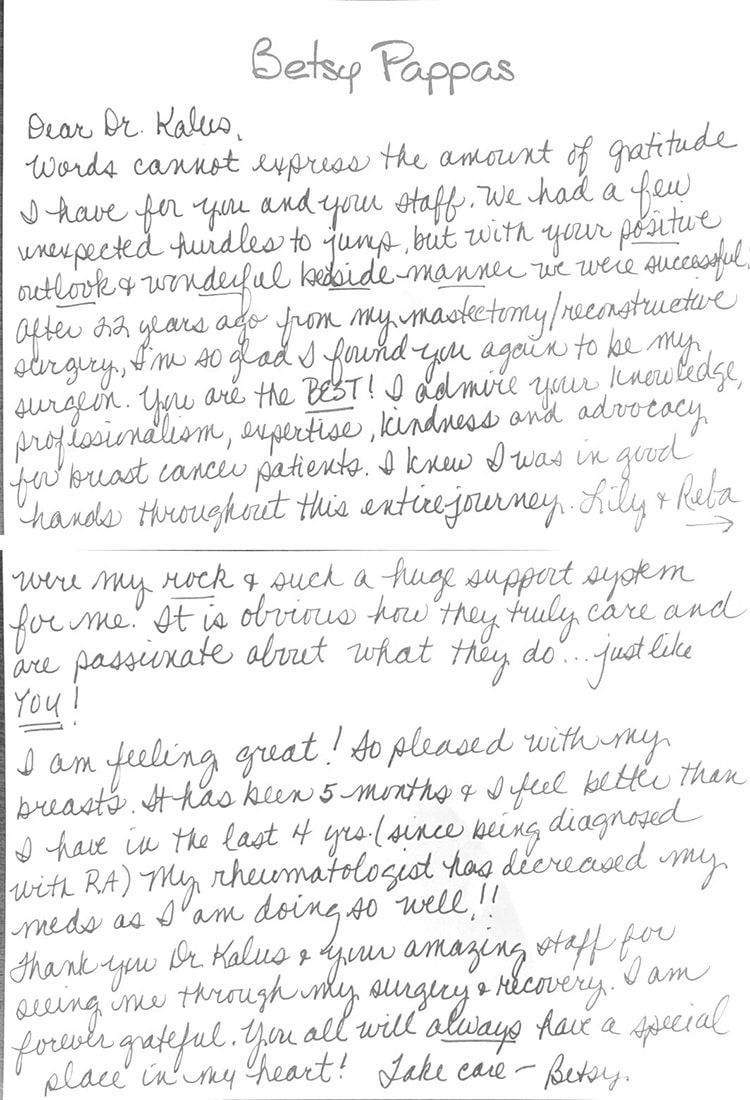 Betsy Pappas
Dear Dr. Kalus,
Words cannot express the amount of gratitude
I have for you and your staff. We had a few
unexpected hurdles to jump, but with your positive
outlook & wonderful bedside manner we were successful!
After 22 years ago from my mastectomy/reconstructive
surgery, I'm so glad I found you again to be my
surgeon. You are the BEST! I admire your knowledge,
professionalism, expertise, kindness and advocacy
for breast cancer patients. I knew I was in good
hands throughout this entire journey. Lily & Reba
→
were my rock & such a huge support system
for me. It is obvious how they truly care and
are passionate about what they do... just like
YOU!
I am feeling great! So pleased with my
breasts. It has been 5 months & I feel better than
I have in the last 4 yrs. (since being diagnosed
with RA) My rheumatologist has decreased my
meds as I am doing so well!!
Thank you Dr. Kalus & your amazing staff for
seeing me through my surgery & recovery. I am
forever grateful. You all will always have a special
place in my heart! Take care - Betsy.